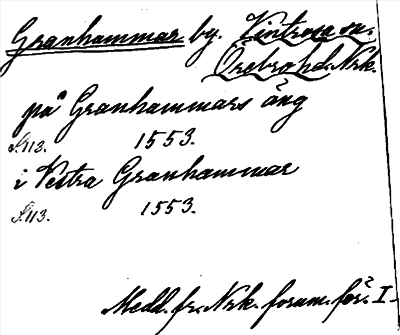 Granhammar by. Vintrosa sn.
Örebro hd. Nrk.
på Granhammars äng
S.112. 1553.
i Vestra Granhammar
S.113. 1553.
Medd. fr. Nrk. fornm. för. I.